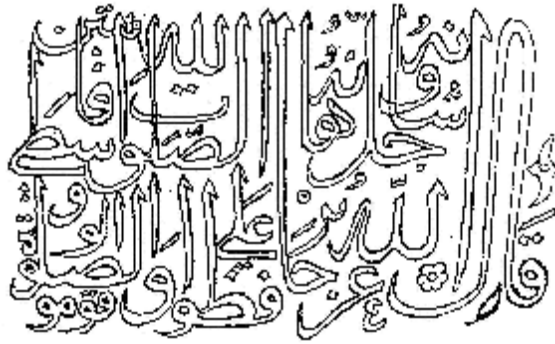 قال الله عز شانه وجل برهانه حافظوا على الصلوات والصلوة الوسطى وقوموا لله قانتين